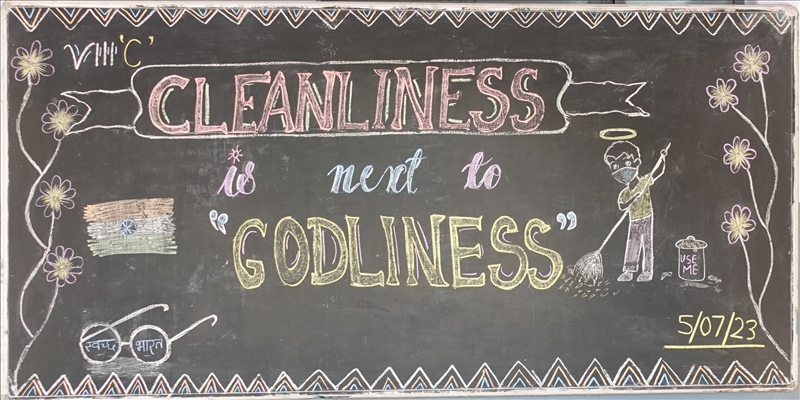 VIII 'C'
CLEANLINESS
is next to
"GODLINESS"
USE
ME
स्वच्छ भारत
5/07/23